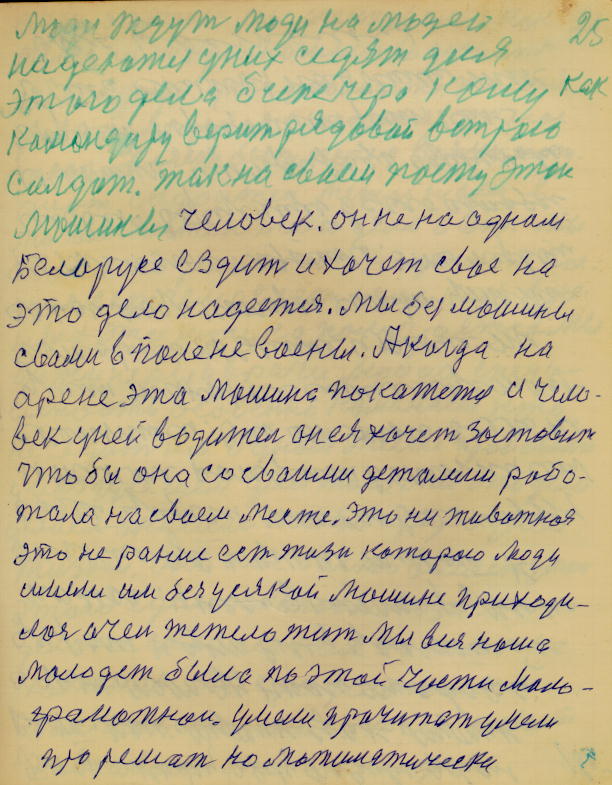 люди ждут люди на людей 25
надеются у них сидят для
этого дела бич вечера кашу как
командиру верит рядовой в строю
солдат. так на своем посту этой
машины человек. он не на одном
Беларусе ездит и хочет свое на
это дело надеется. Мы без машины
свами в поле не воены. А когда на
арене эта машина покажется и чело-
век у ней водител он ея хочет заставит
что бы она со своими деталями рабо-
тала на своем месте. это ни животноя
это не ранше ест жизн которою люди
имели им без усякой машине приходи-
лоя очен тежело жит мы вся наша
молодеж была по этой части мало-
грамотной. умели прочитат умели
про решат но матиматически